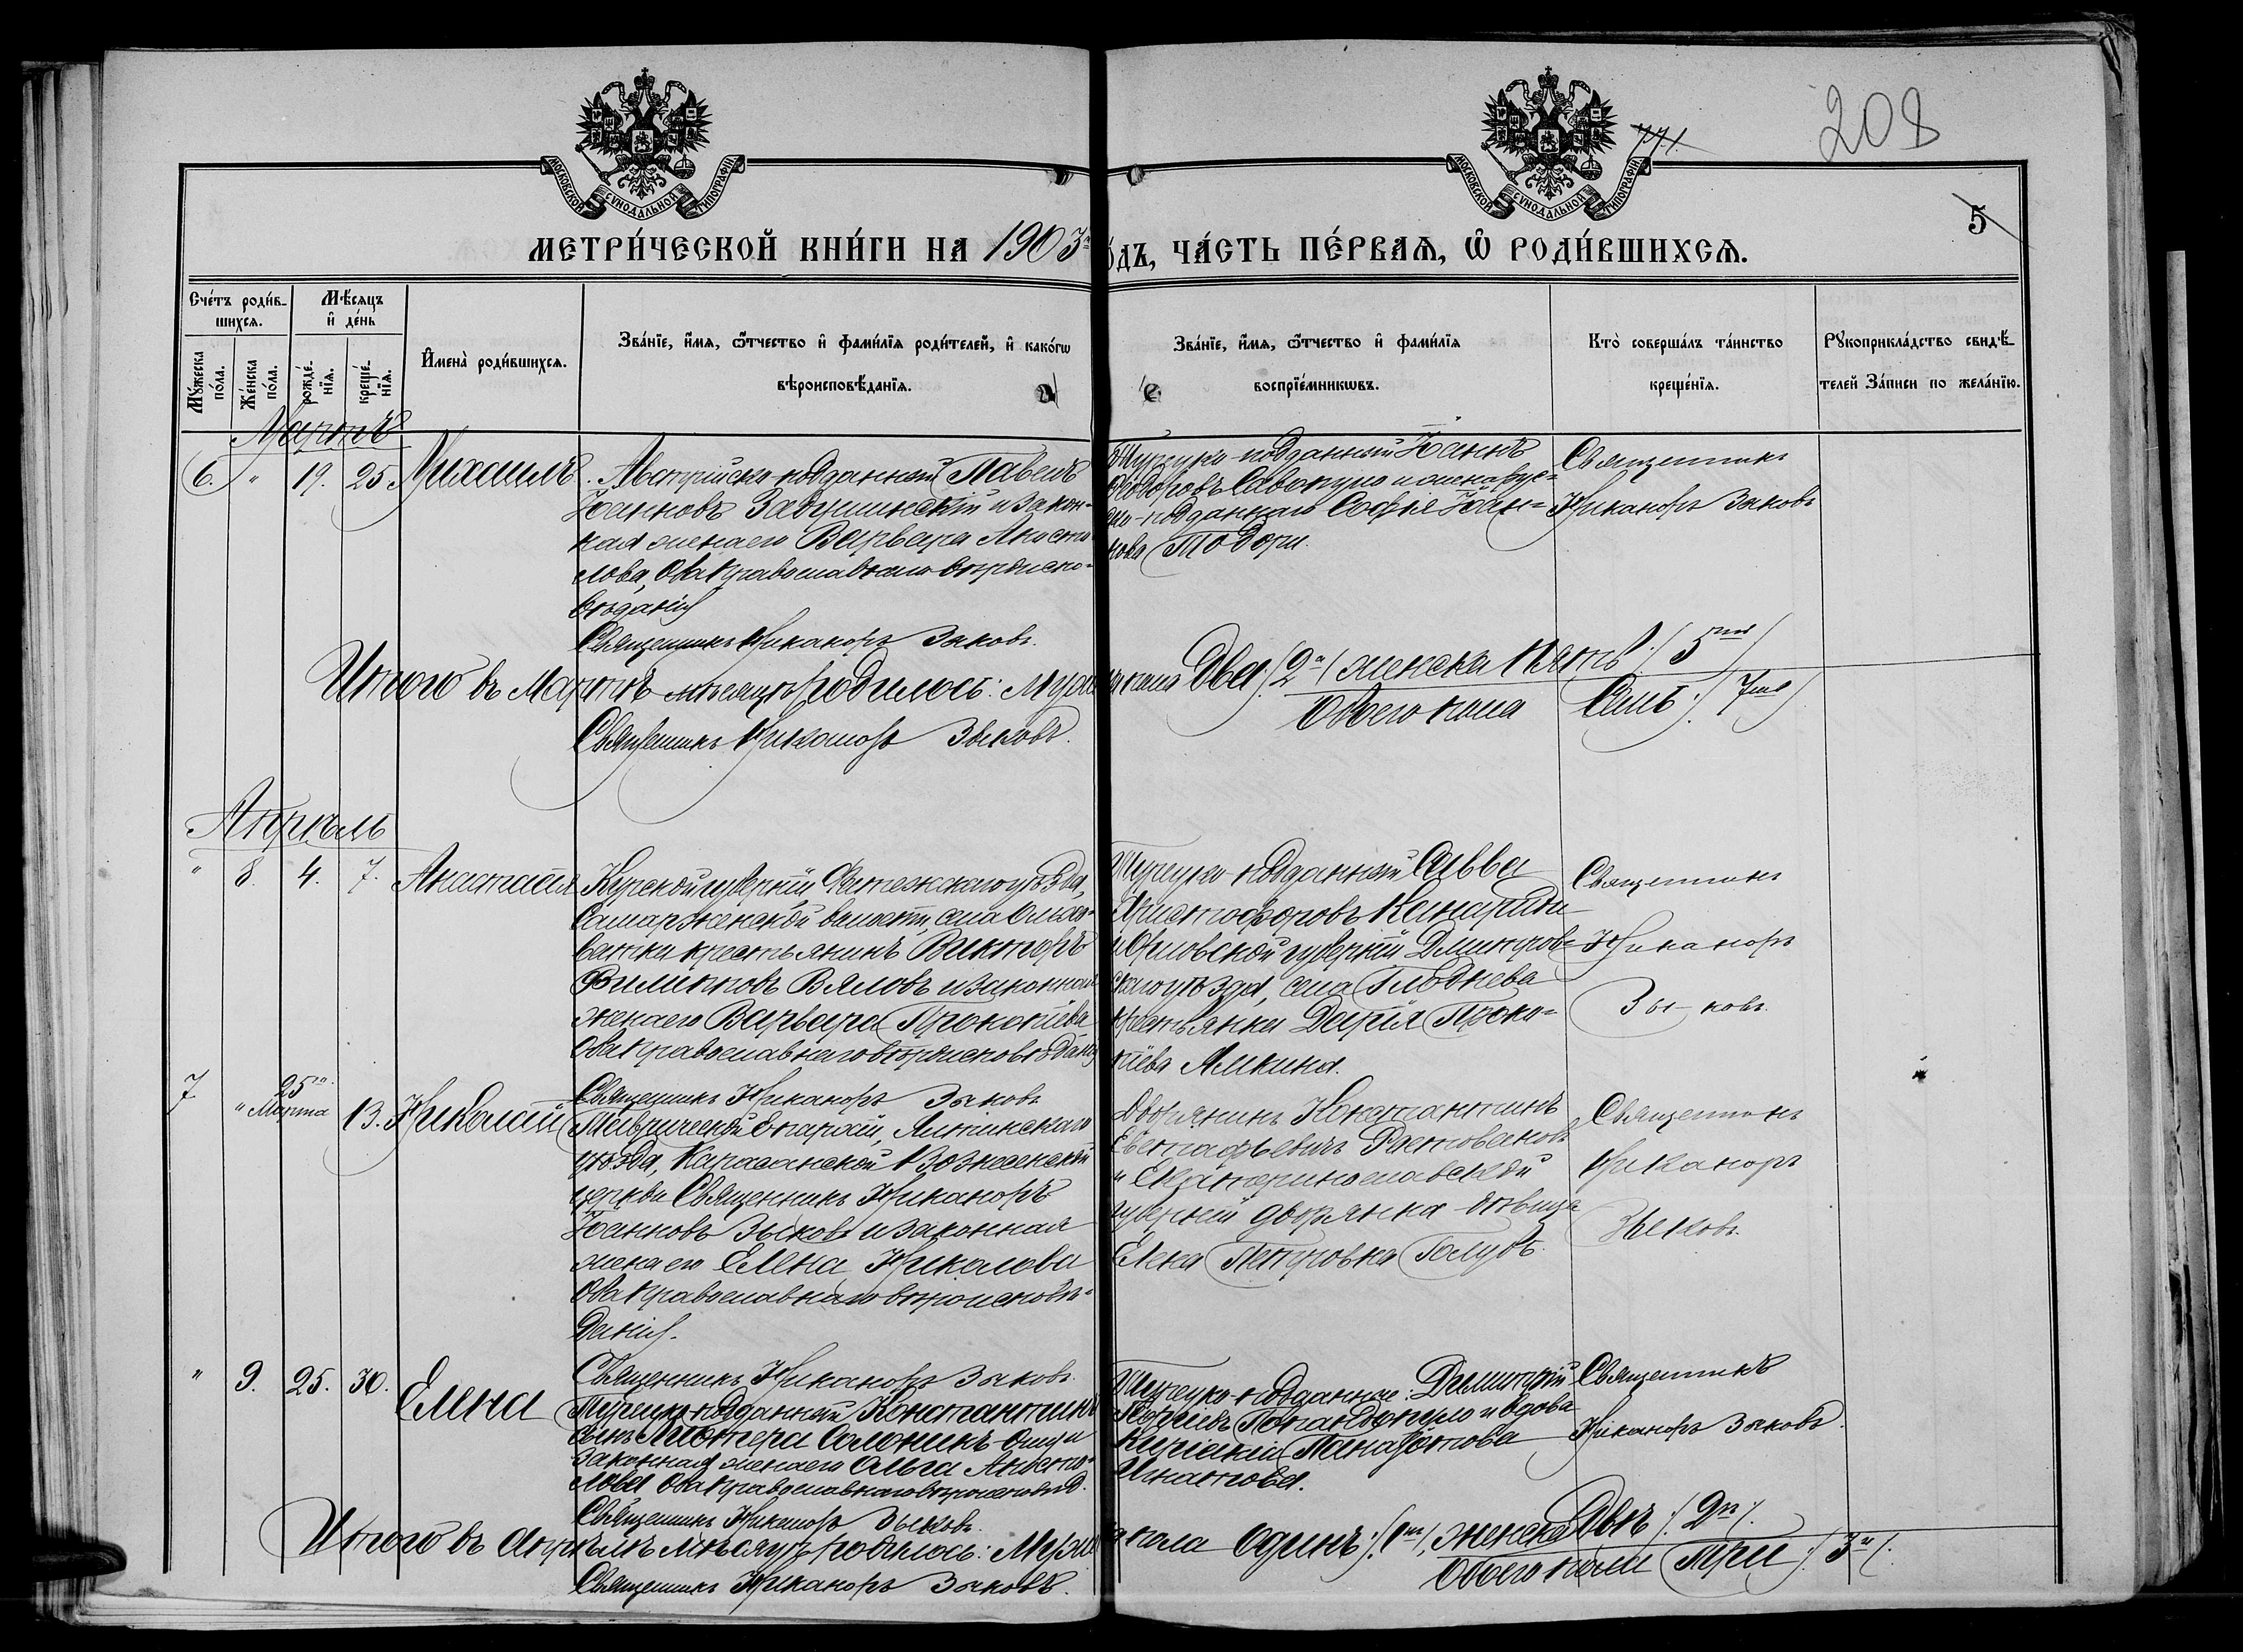 208
5
МОСКОВСКОЙ СУНОДАЛЬНОЙ ТИПОГРАФІИ
МОСКОВСКОЙ СУНОДАЛЬНОЙ ТИПОГРАФІИ
МЕТРИ́ЧЕСКОЙ КНИ́ГИ НА 1903 г
о́дъ, ЧА́СТЬ ПЕ́РВАЯ, Ѽ РОДИ́ВШИХСЯ.
Сче́тъ роди́в-
шихся.
Мꙋ́жеска по́ла.
Же́нска по́ла.
Мѣ́сяцъ и҆ де́нь
рожде́-нїя.
креще́-нїя.
И҆мена̀ роди́вшихся.
Зва́нїе, и҆́мя, ѻ҆́тчество и҆ фами́лїя роди́телей, и҆ како́гѡ
вѣроисповѣ́данїя.
Зва́нїе, и҆́мя, ѻ҆́тчество и҆ фами́лїя
воспрїе́мникѡвъ.
Кто̀ соверша́лъ та́инство
креще́нїя.
Рꙋкоприкла́дство свидѣ́-
телей за́писи по жела́нїю.
Мартъ
6. " 19. 25. Михаилъ
Австрійско-подданный Павелъ
Іоанновъ Задушинскій и закон-
ная жена его Варвара Апосто-
лова, оба православнаго вѣроиспо-
вѣданія
Священникъ Никаноръ Зыковъ.
Турецко-подданный Іоаннъ
Ѳеодоровъ Савопуло и жена рус-
ско-подданнаго Софія Іоан-
нова Тодори.
Священникъ
Никаноръ Зыковъ
Итого въ Мартѣ мѣсяцѣ родилось: мужска пола два /2а/ женска пять /5ть/
Обоего пола Семь /7мь/
Священникъ Никаноръ Зыковъ.
Апрѣль
" 8. 4. 7. Анастасія
Курской губерніи, Фатежскаго уѣзда,
волости, села Ольхо-
ватки крестьянинъ Викторъ
Филипповъ Вяловъ и законная
жена его Варвара Прокопіева
оба православнаго вѣроисповѣданія
Священникъ Никаноръ Зыковъ
Турецко-подданный Савва
Христофоровъ
и Орловской губерніи Дмитров-
скаго уѣзда, села Глоднева
крестьянка Дарія Проко-
піева Алкина.
Священникъ
Никаноръ
Зыковъ.
7 " 25го Марта 13. Николай
Таврической Епархіи, Ялтинскаго
уѣзда, Карасанской Вознесенской
церкви Священникъ Никаноръ
Іоанновъ Зыковъ и законная
жена его Елена Николаева
оба православнаго вѣроисповѣ-
данія.
Священникъ Никаноръ Зыковъ.
Дворянинъ Константинъ
Евстафьевичъ
и Екатеринославской
губерніи дворянка-дѣвица
Елена Петровна Голубъ.
Священникъ
Никаноръ
Зыковъ.
" 9. 25. 30. Елена
Турецко-подданный Константинъ
законная жена его Ольга Апосто-
лова оба православнаго вѣроисповѣд.
Священникъ Никаноръ Зыковъ.
Турецко-подданные: Димитрій
и вдова
Игнатова.
Священникъ
Никаноръ Зыковъ.
Итого въ Апрѣлѣ мѣсяцѣ родилось: мужска пола одинъ /1нъ/, женска двѣ /2ѣ/.
Обоего пола Три /3и/.
Священникъ Никаноръ Зыковъ.